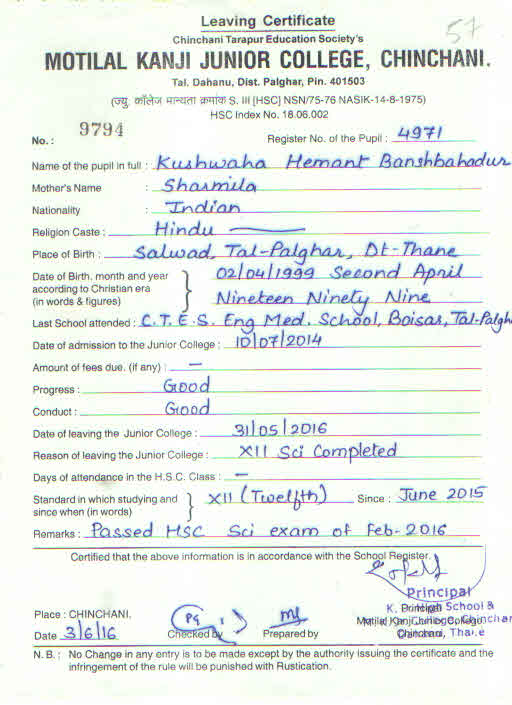 57
Leaving Certificate
Chinchani Tarapur Education Society's
MOTILAL KANJI JUNIOR COLLEGE, CHINCHANI.
Tal. Dahanu, Dist. Palghar, Pin. 401503
(ज्यु. कॉलेज मान्यता क्रमांक S. III [HSC] NSN/75-76 NASIK-14-8-1975)
HSC Index No. 18.06.002
No.: 9794 Register No. of the Pupil : 4971
Name of the pupil in full : Kushwaha Hemant Banshbahadur
Mother's Name : Sharmila
Nationality : Indian
Religion Caste : Hindu
Place of Birth : Salwad, Tal-Palghar, Dt-Thane
Date of Birth, month and year according to Christian era (in words & figures) 02/04/1999 Second April
Nineteen Ninety Nine
Last School attended : C.T.E.S. Eng Med. School, Boisar, Tal-Palgh
Date of admission to the Junior College : 10/07/2014
Amount of fees due. (if any) : —
Progress : Good
Conduct : Good
Date of leaving the Junior College : 31/05/2016
Reason of leaving the Junior College : XII Sci Completed
Days of attendance in the H.S.C. Class : —
Standard in which studying and since when (in words) XII (Twelfth) Since : June 2015
Remarks : Passed HSC Sci exam of Feb-2016
Certified that the above information is in accordance with the School Register.
Principal
K. High School &
Place : CHINCHANI.
Date 3/6/16 Checked by Prepared by Chinchani, Thane
N. B. : No Change in any entry is to be made except by the authority issuing the certificate and the
infringement of the rule will be punished with Rustication.